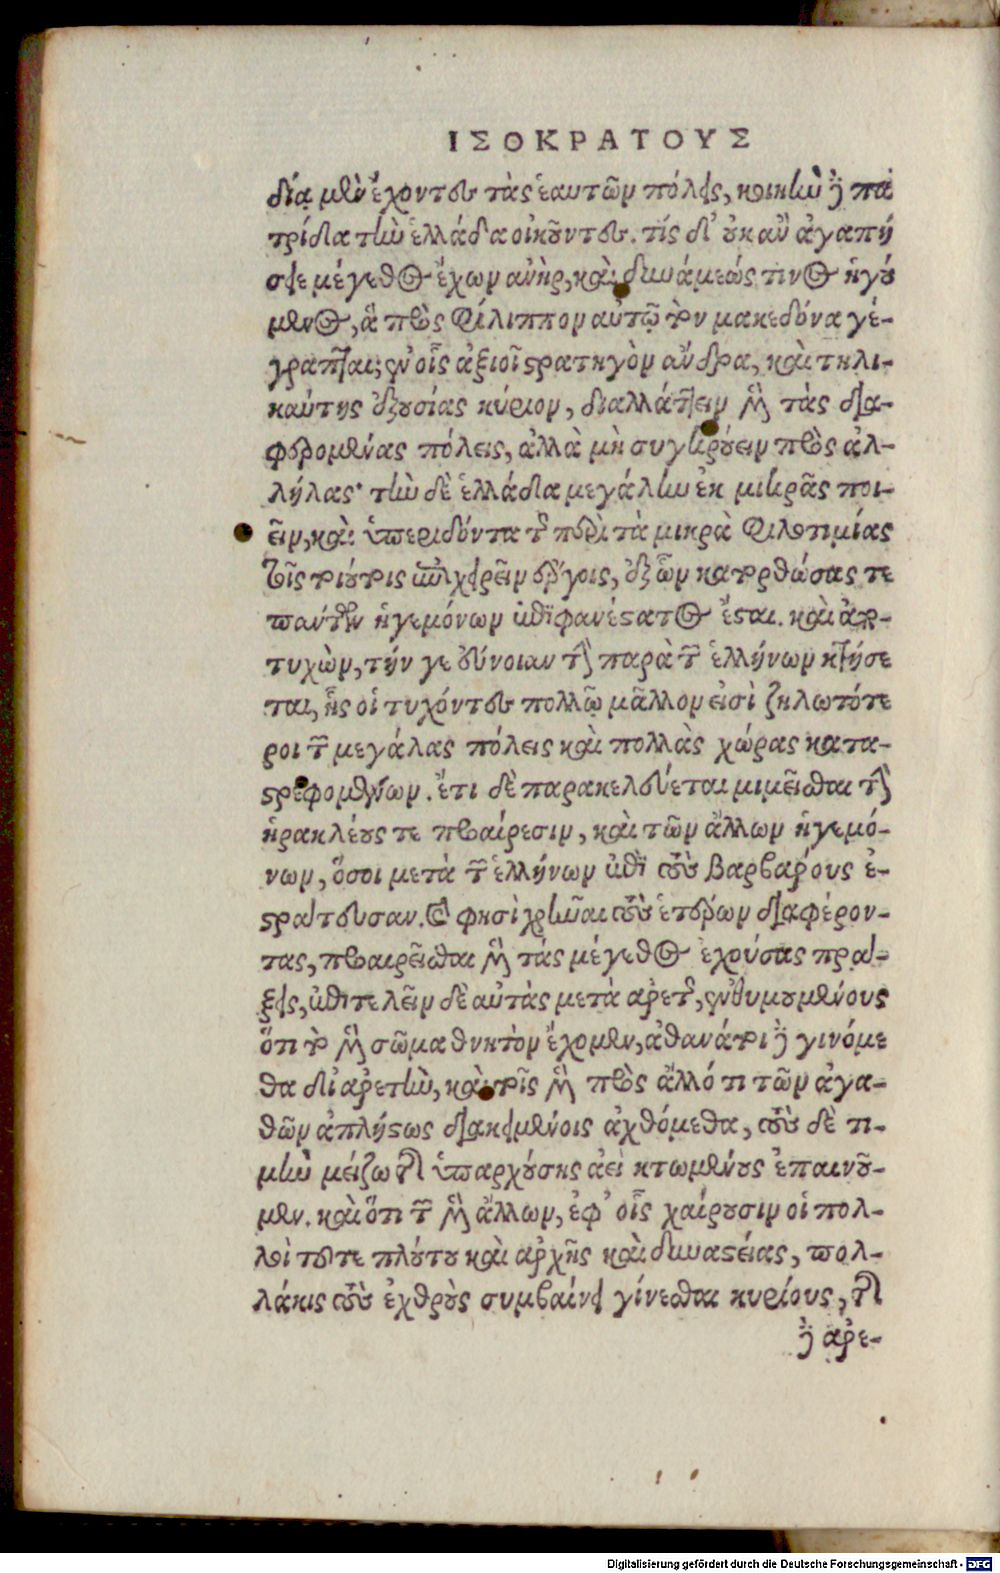 ΙΣΟΚΡΑΤΟΥΣ
δία μὲν ἔχοντες τὰς ἑαυτῶν πόλεις, κοινὴν δὲ πα
τρίδα τὴν ἑλλάδα οἰκοῦντες. τίς δ' οὐκ ἂν ἀγαπή
σειε μέγεθος ἔχων ἀνὴρ, καὶ δυνάμεώς τινος ἡγού
μενος, ἃ πρὸς Φίλιππον αὐτῷ τὸν μακεδόνα γέ-
γραπται; ἐν οἷς ἀξιοῖ στρατηγὸν ἄνδρα, καὶ τηλι-
καύτης ἐξουσίας κύριον, διαλλάττειν μὲν τὰς δια-
φερομένας πόλεις, ἀλλὰ μὴ συγκρούειν πρὸς ἀλ-
λήλας· τὴν δὲ ἑλλάδα μεγάλην ἐκ μικρᾶς ποι-
εῖν, καὶ ὑπεριδόντα τῆς περὶ τὰ μικρὰ Φιλοτιμίας
τοῖς τοιούτοις ἐπιχειρεῖν ἔργοις, ἐξ ὧν κατορθώσας τε
πάντων ἡγεμόνων ἐπιφανέστατος ἔσται. καὶ ἀπο-
τυχὼν, τήν γε εὔνοιαν τὴν παρὰ τῶν ἑλλήνων κτήσε
ται, ἧς οἱ τυχόντες πολλῷ μᾶλλον εἰσὶ ζηλωτότε
ροι τῶν μεγάλας πόλεις καὶ πολλὰς χώρας κατα-
στρεφομένων. ἔτι δὲ παρακελεύεται μιμεῖσθαι τὴν
ἡρακλέους τε προαίρεσιν, καὶ τῶν ἄλλων ἡγεμό-
νων, ὅσοι μετὰ τῶν ἑλλήνων ἐπὶ τοὺς βαρβάρους ἐ-
στράτευσαν. καὶ φησὶ χρῆναι τοὺς ἑτέρων διαφέρον-
τας, προαιρεῖσθαι μὲν τάς μέγεθος ἐχούσας πρά-
ξεις, ἐπιτελεῖν δὲ αὐτὰς μετὰ ἀρετῆς, ἐνθυμουμένους
ὅτι τὸ μὲν σῶμα θνητὸν ἔχομεν, ἀθανάτοι δὲ γινόμε
θα δι' ἀρετὴν, καὶ τοῖς μὲν πρὸς ἄλλό τι τῶν ἀγα-
θῶν ἀπλήστως διακειμένοις ἀχθόμεθα, τοὺς δὲ τι-
μὴν μείζω τῆς ὑπαρχούσης ἀεὶ κτωμένους ἐπαινοῦ-
μεν. καὶ ὅτι τῶν μὲν ἄλλων, ἐφ' οἷς χαίρουσιν οἱ πολ-
λοὶ τοῦτε πλούτου καὶ ἀρχῆς καὶ δυναστείας, πολ-
λάκις τοὺς ἐχθροὺς συμβαίνει γίνεσθαι κυρίους, τῆς
δὲ ἀρε-
Digitalisierung gefördert durch die Deutsche Forschungsgemeinschaft - DFG